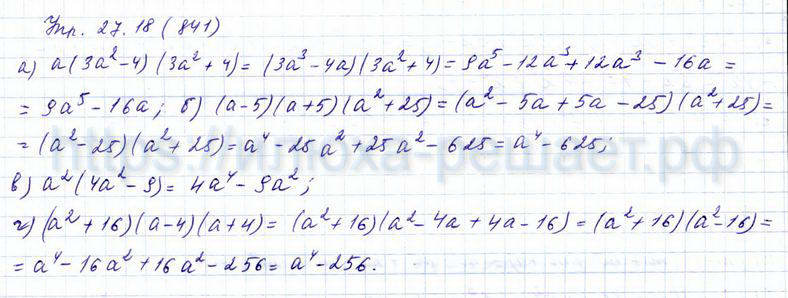 Упр. 27.18 (841)
а) a(3a²-4)(3a²+4)= (3a³-4a)(3a²+4)= 9a⁵-12a³+12a³-16a=
= 9a⁵-16a; б) (a-5)(a+5)(a²+25)=(a²-5a+5a-25)(a²+25)=
=(a²-25)(a²+25)=a⁴-25a²+25a²-625=a⁴-625;
в) a²(4a²-9)= 4a⁴-9a²;
г) (a²+16)(a-4)(a+4)= (a²+16)(a²-4a+4a-16)=(a²+16)(a²-16)=
= a⁴-16a²+16a²-256=a⁴-256.
https://илюха-решает.рф